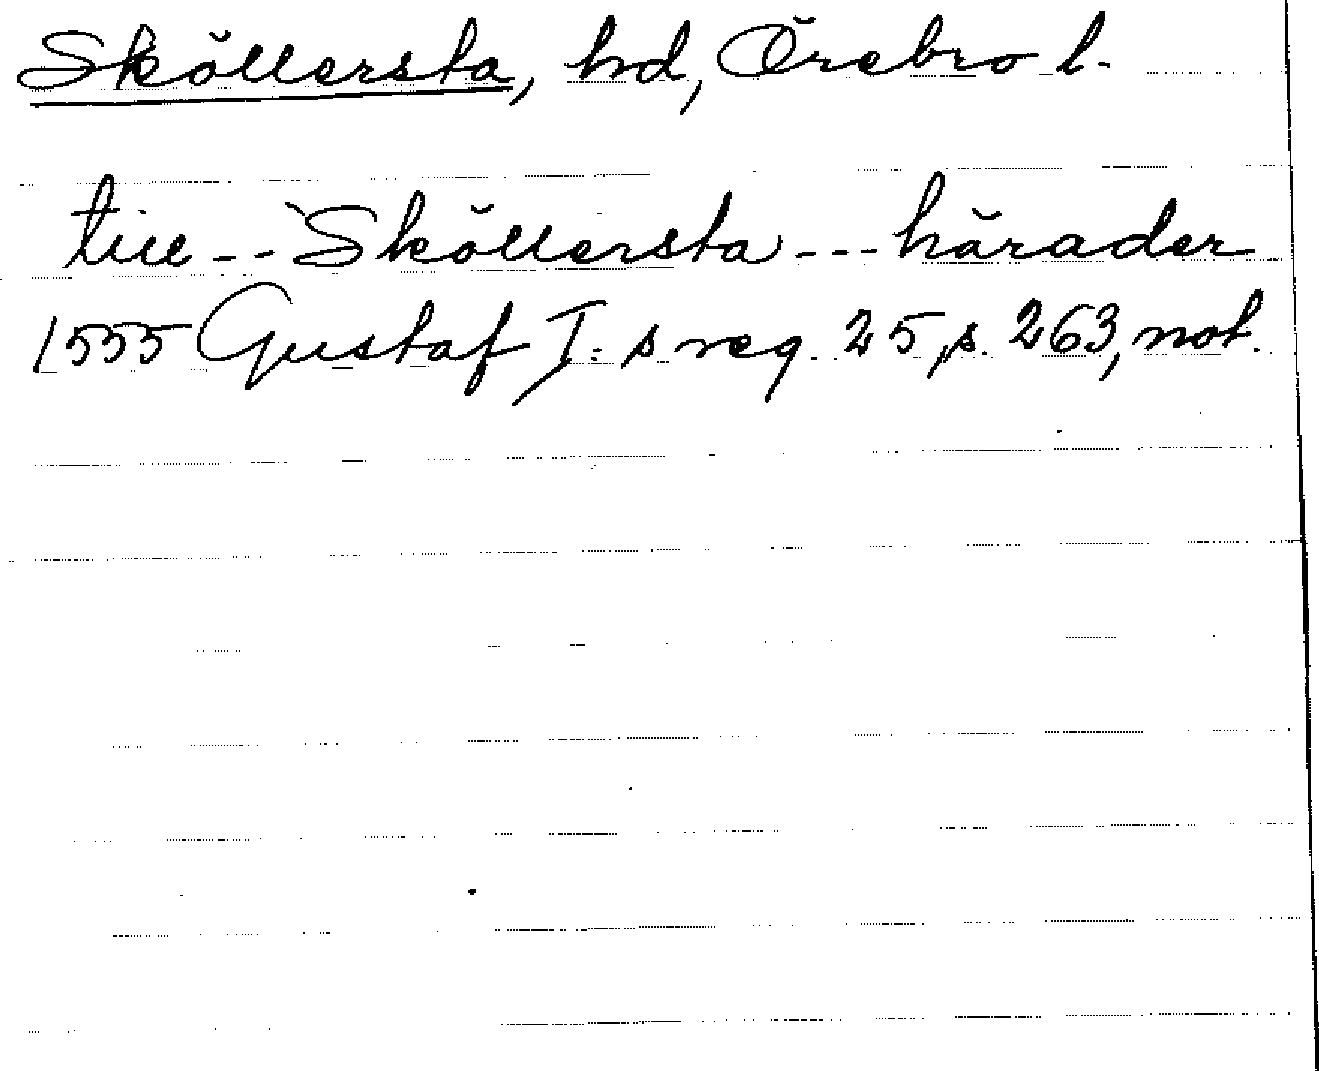 Sköllersta, hd, Örebro l.
till -- Sköllersta --- härader
1555 Gustaf I:s reg. 25, s. 263, not.